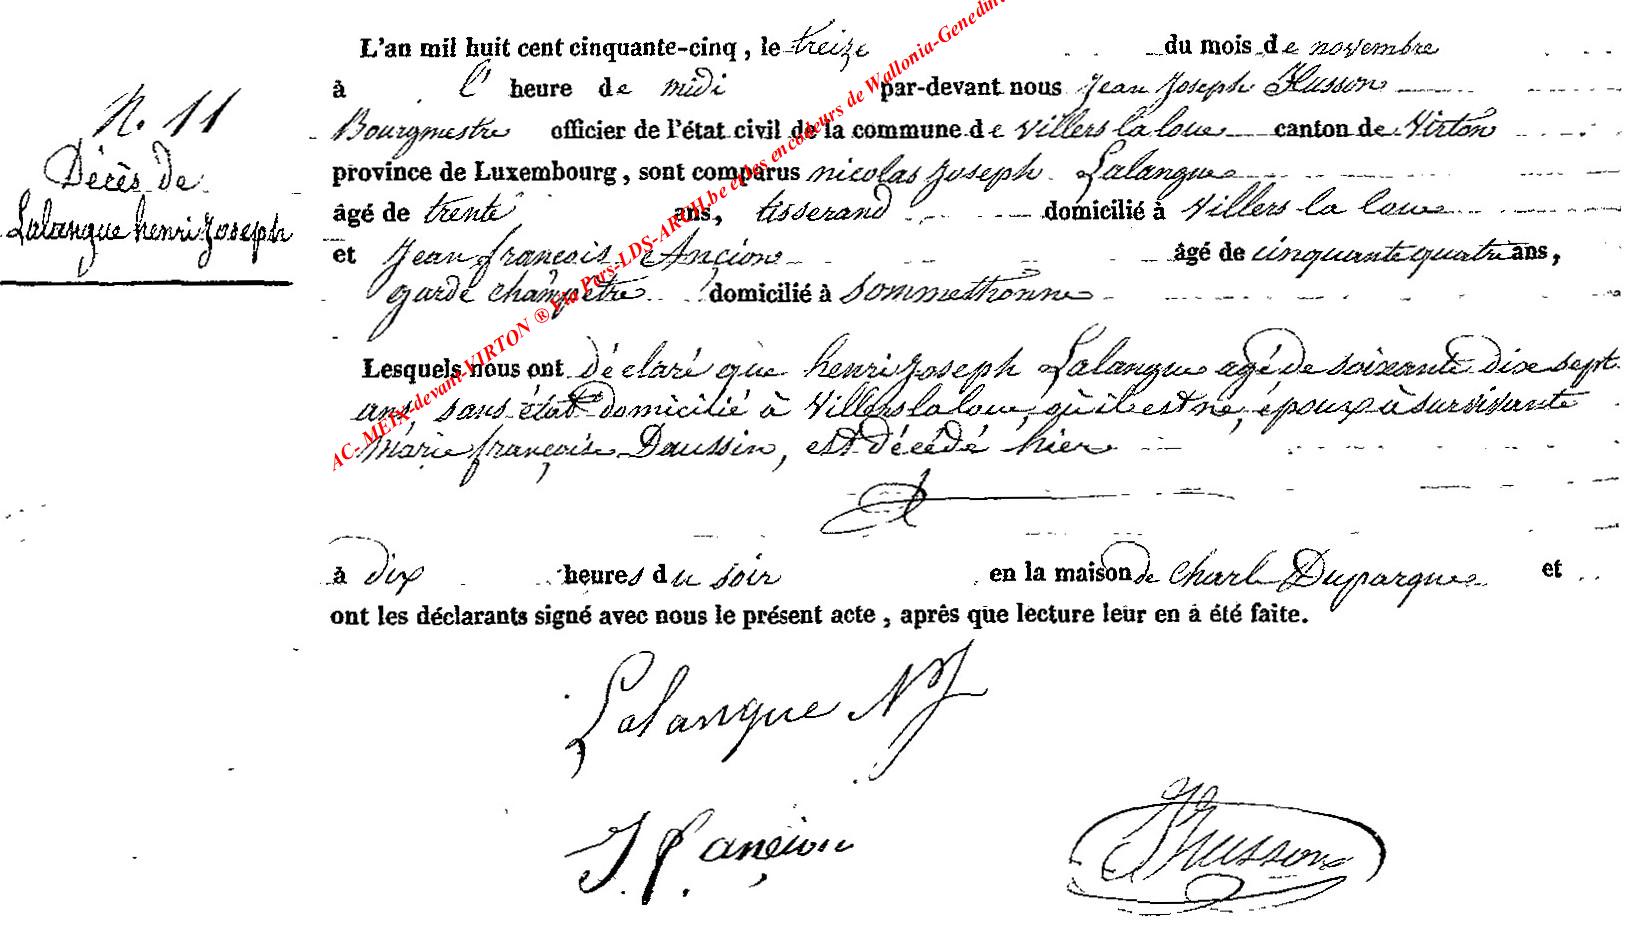 N. 11
Décès de
Lalangue henri Joseph
L'an mil huit cent cinquante-cinq, le treize du mois de novembre
à l' heure de midi par-devant nous Jean Joseph Husson
Bourgmestre officier de l'état civil de la commune de Villers la loue canton de Virton
province de Luxembourg, sont comparus nicolas Joseph Lalangue
âgé de trente ans, tisserand domicilié à Villers la loue
et Jean françois Ançion âgé de cinquante quatre ans,
garde champêtre domicilié à Sommethonne
Lesquels nous ont déclaré que henri Joseph Lalangue agé de soixante dix sept
ans, sans état domicilié à Villers la loue, où il est né, époux à survivante
Marie françoise Daussin, est décédé hier
à dix heures du soir en la maison de Charl Duparque et
ont les déclarants signé avec nous le présent acte, après que lecture leur en à été faite.
Lalangue NJ
J. f. ançion
JHusson
AC-MEIX-devant-VIRTON ® Via Pars-LDS-ARCH.be et les encodeurs de Wallonia-Genedin